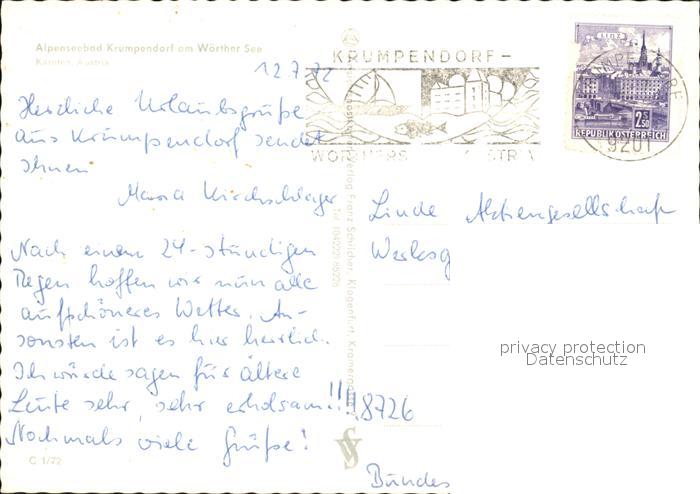 Alpenseebad Krumpendorf am Wörther See
Kärnten, Austria
12.7.72
Herzliche Urlaubsgrüße
aus Krumpendorf sendet
Ihnen
Maria Kirchschlager
Nach einem 24-stündigen
Regen hoffen wir nun alle
auf schöneres Wetter. An-
sonsten ist es hier herrlich.
Ich würde sagen für ältere
Leute sehr, sehr erholsam!!!!
Nochmals viele Grüße!
C 1/72
Verlag Franz Schilcher, Klagenfurt
KRUMPENDORF-
AUSTRIA
LINZ
2.50
REPUBLIK ÖSTERREICH
9201
Linde Aktiengesellschaft
Werksg
privacy protection
Datenschutz
8726
Bundes